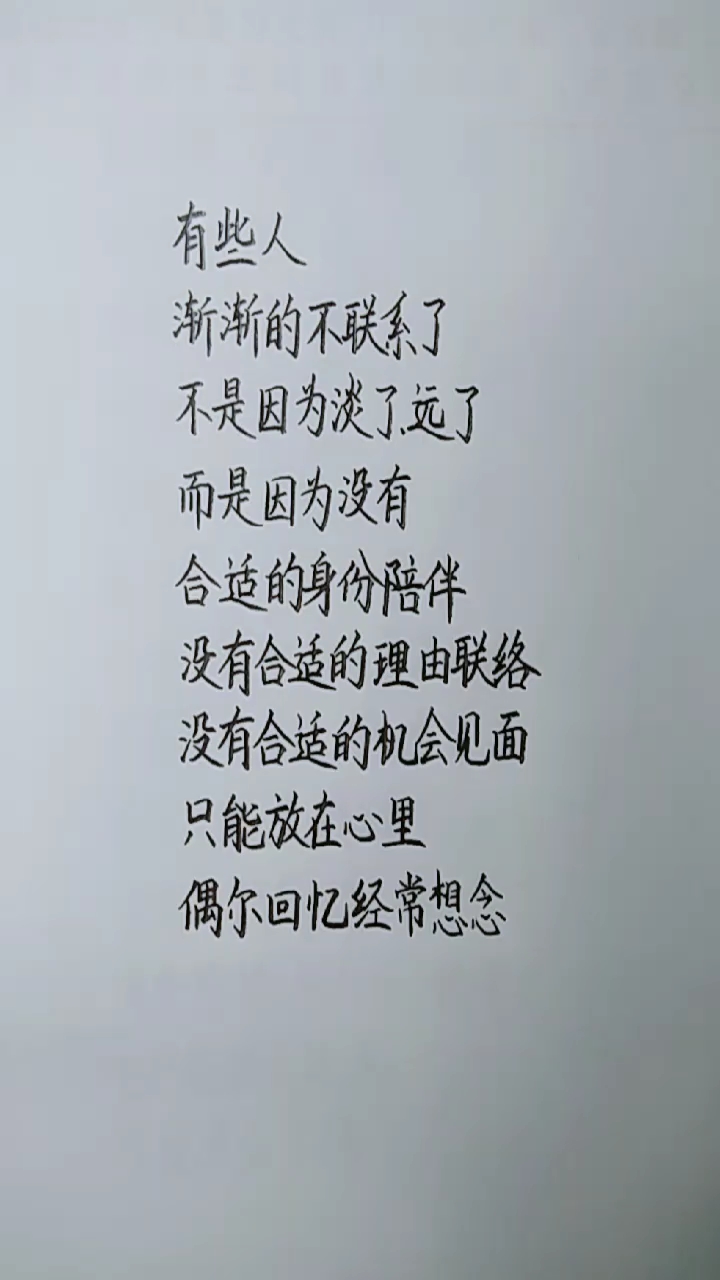 有些人
渐渐的不联系了
不是因为淡了、远了
而是因为没有
合适的身份陪伴
没有合适的理由联络
没有合适的机会见面
只能放在心里
偶尔回忆经常想念